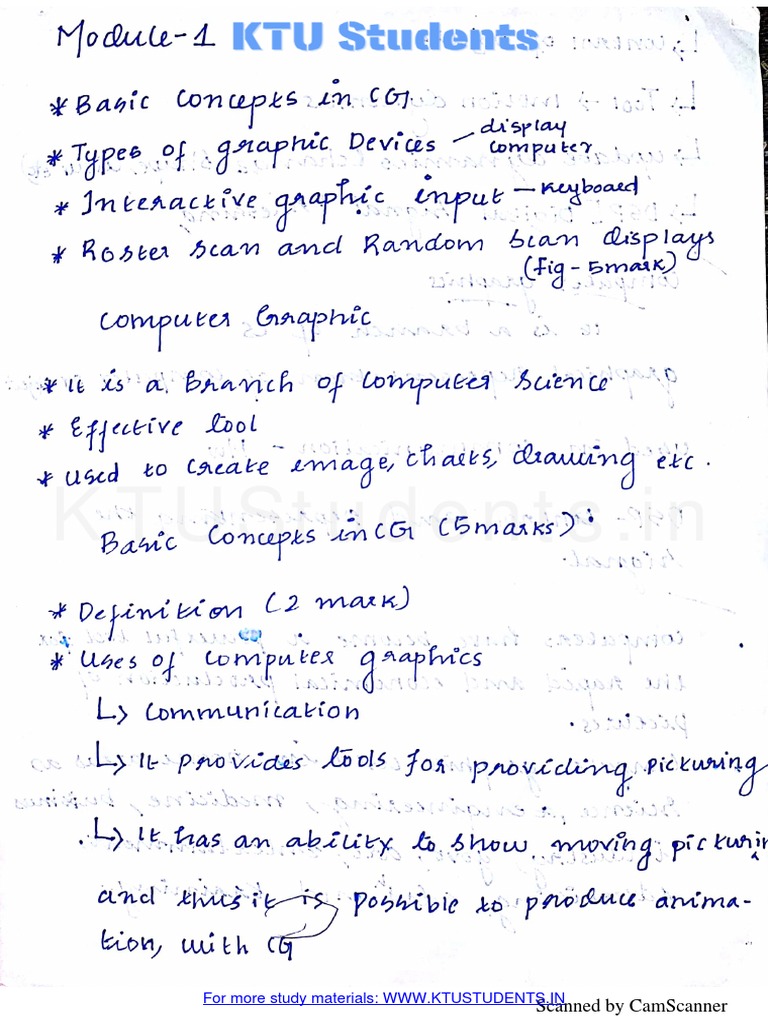 Module-1 KTU Students
* Basic Concepts in CG
* Types of graphic Devices – display
computer
* Interactive graphic input – Keyboard
* Roster Scan and Random Scan displays
(fig - 5mark)
Computer Graphic
* It is a Branch of Computer Science
* Effective tool
* Used to create image, charts, drawing etc.
KTUStudents.in
Basic Concepts in CG (5marks):
* Definition (2 mark)
* Uses of Computer graphics
↳ Communication
↳ It provides tools for providing picturing
↳ It has an ability to show moving picturin
and thus it is possible to produce anima-
tion, with CG
For more study materials: WWW.KTUSTUDENTS.IN
Scanned by CamScanner